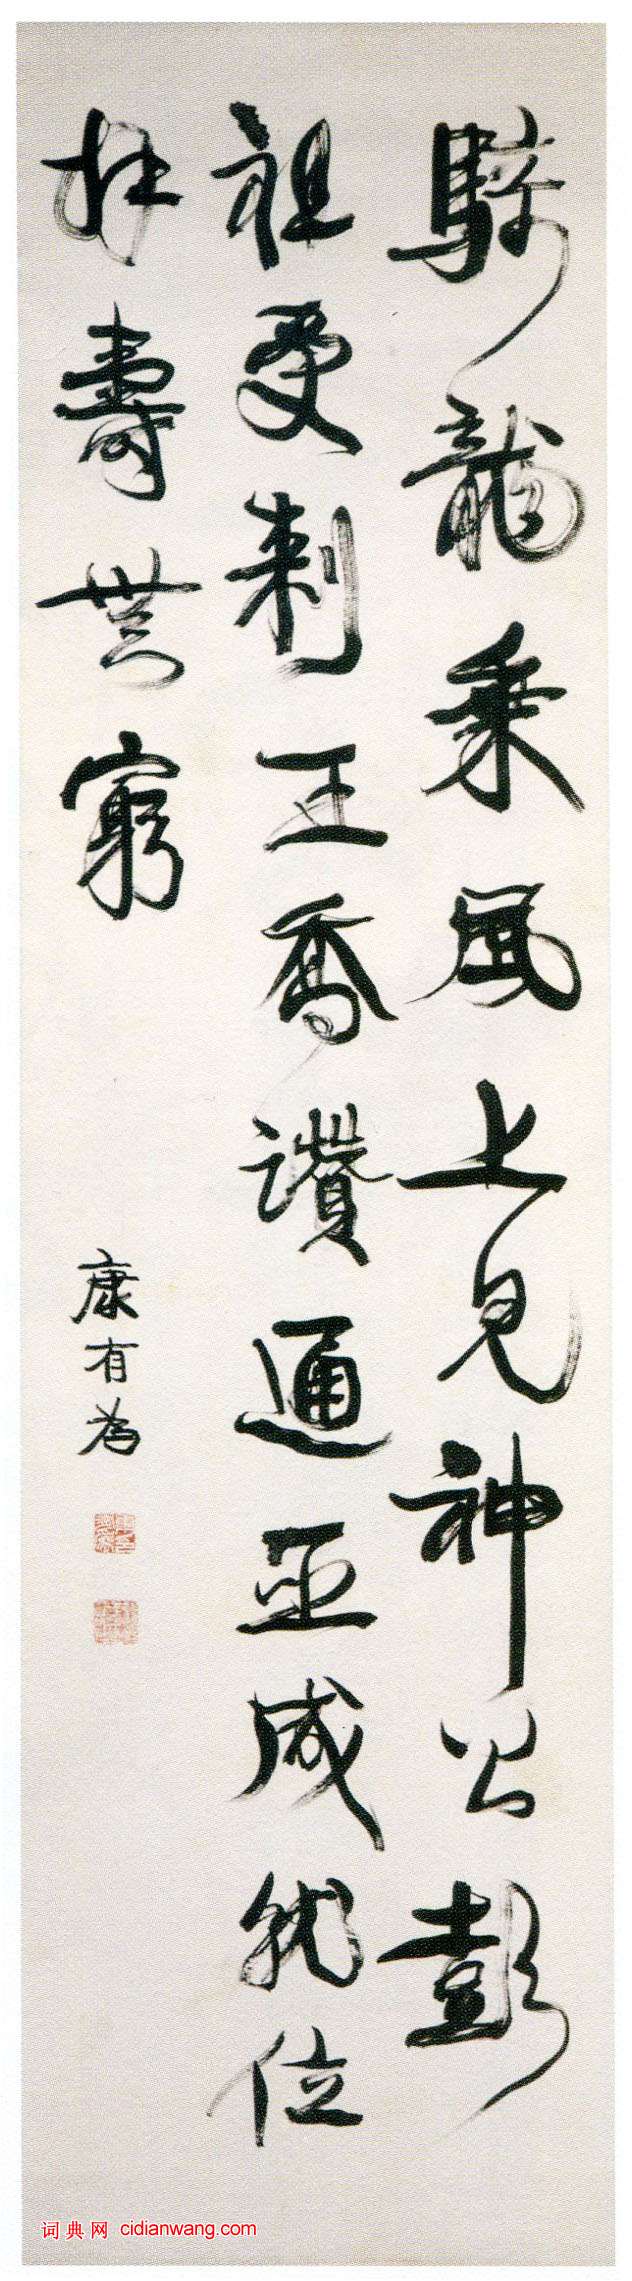 騎龍乘風上見神公彭
祖受刺王喬讚通巫咸就位
拜壽無窮
康有為
词典网 cidianwang.com